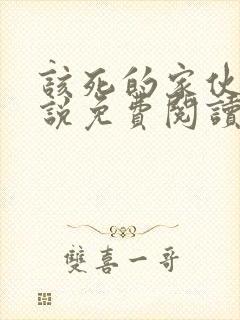 該死的家伙
說免費閱讀
雙喜一哥